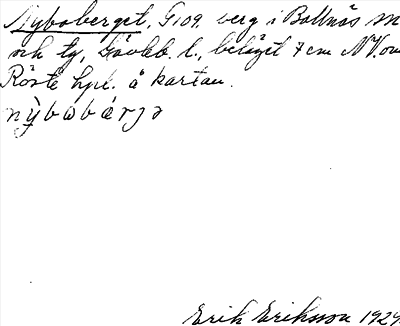 Nyboberget, G109. berg i Bollnäs sn
och tg, Gävleb. l., beläget 7 cm NV. om
Röste hpl. å kartan.
nỳbobǽrjə
Erik Eriksson 1929.